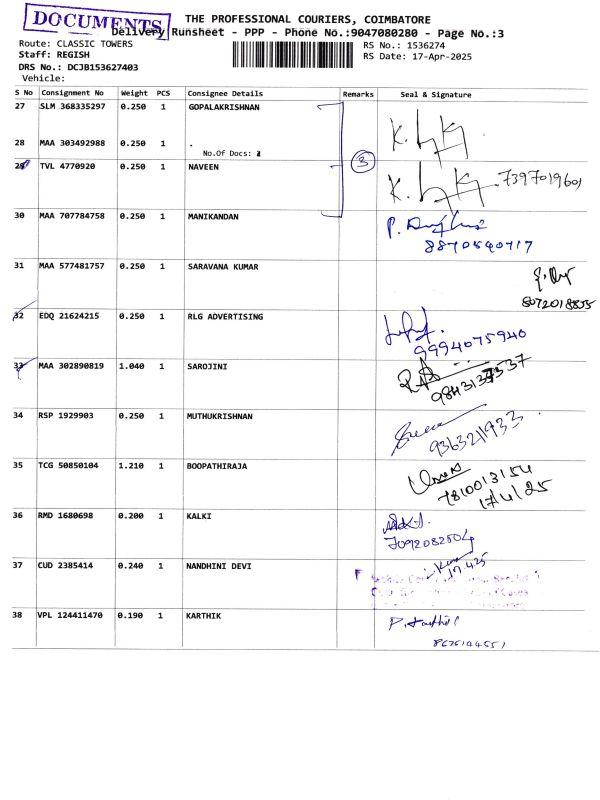 DOCUMENTS
THE PROFESSIONAL COURIERS, COIMBATORE
Delivery Runsheet - PPP - Phone No.:9047080280 - Page No.:3
Route: CLASSIC TOWERS
RS No.: 1536274
Staff: REGISH
RS Date: 17-Apr-2025
DRS No.: DCJB153627403
Vehicle:
S No Consignment No Weight PCS Consignee Details Remarks Seal & Signature
27 SLM 368335297 0.250 1 GOPALAKRISHNAN
28 MAA 303492988 0.250 1 .
No.Of Docs: 2
3
29 TVL 4770920 0.250 1 NAVEEN
7397019601
30 MAA 707784758 0.250 1 MANIKANDAN
8870540717
31 MAA 577481757 0.250 1 SARAVANA KUMAR
8072018855
32 EDQ 21624215 0.250 1 RLG ADVERTISING
9994075940
33 MAA 302890819 1.040 1 SAROJINI
34 RSP 1929903 0.250 1 MUTHUKRISHNAN
9363211933
35 TCG 50850104 1.210 1 BOOPATHIRAJA
7810013154
17/4/25
36 RMD 1680698 0.200 1 KALKI
7092082504
37 CUD 2385414 0.240 1 NANDHINI DEVI
17.4.25
38 VPL 124411470 0.190 1 KARTHIK
P. Karthik